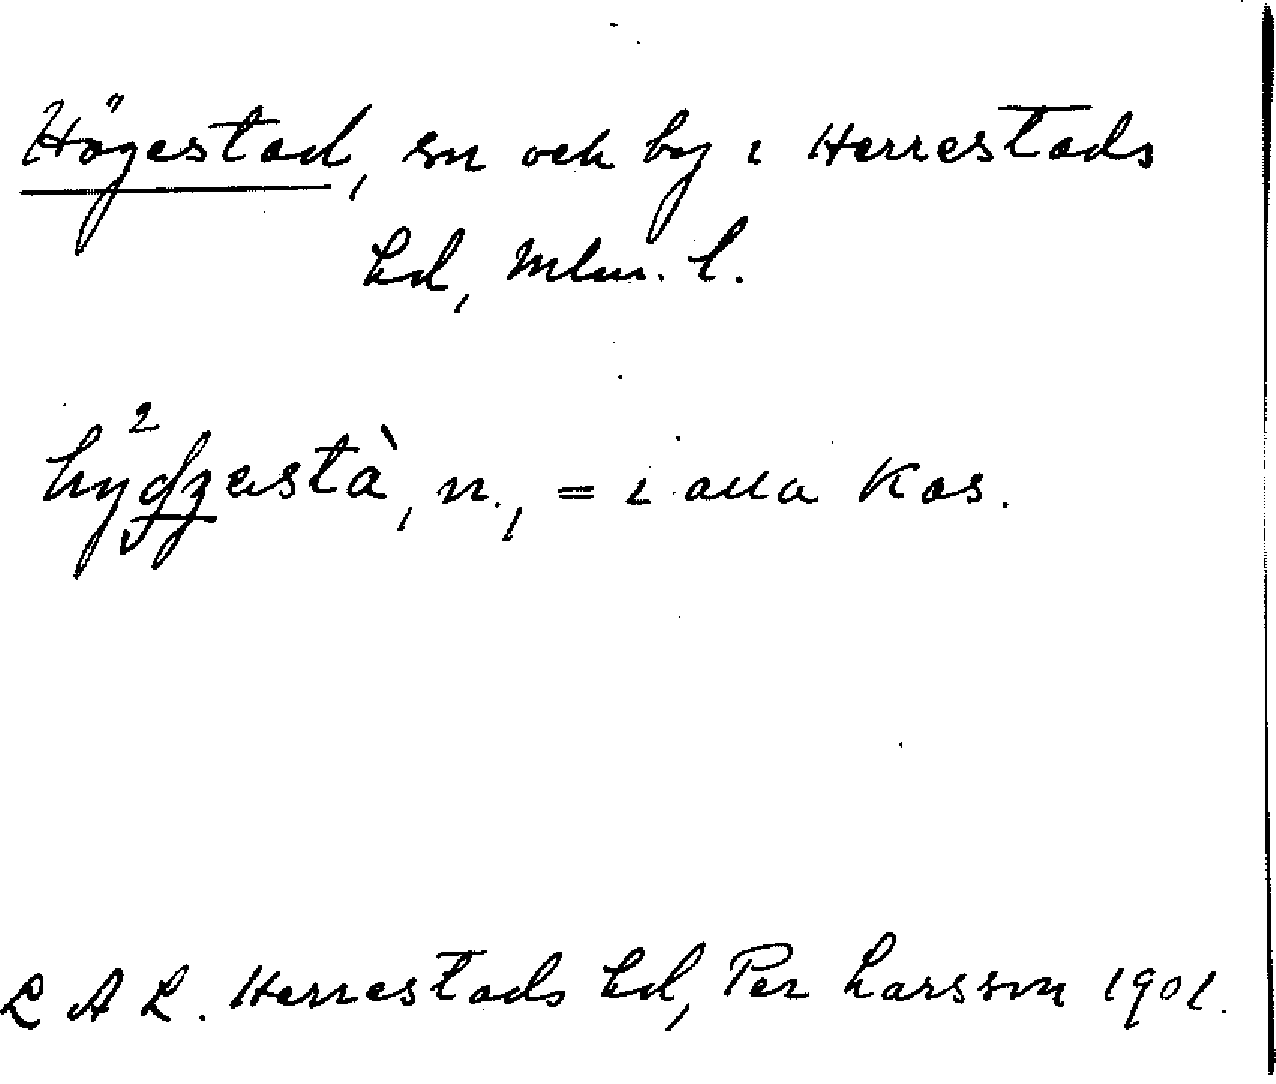 Högestad, sn och by i Herrestads
hd, Mlm. l.
n., = i alla Kas.
L A L. Herrestads hd, Per Larsson 1901.